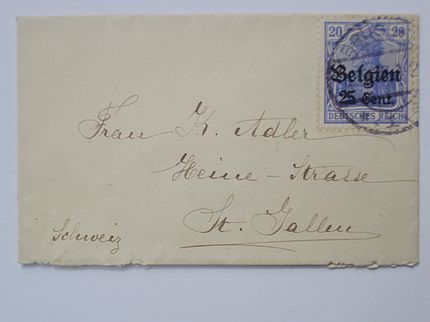 20 20
Belgien
25 Cent.
DEUTSCHES REICH
Frau K. Adler
Heine-Strasse
St. Gallen
Schweiz